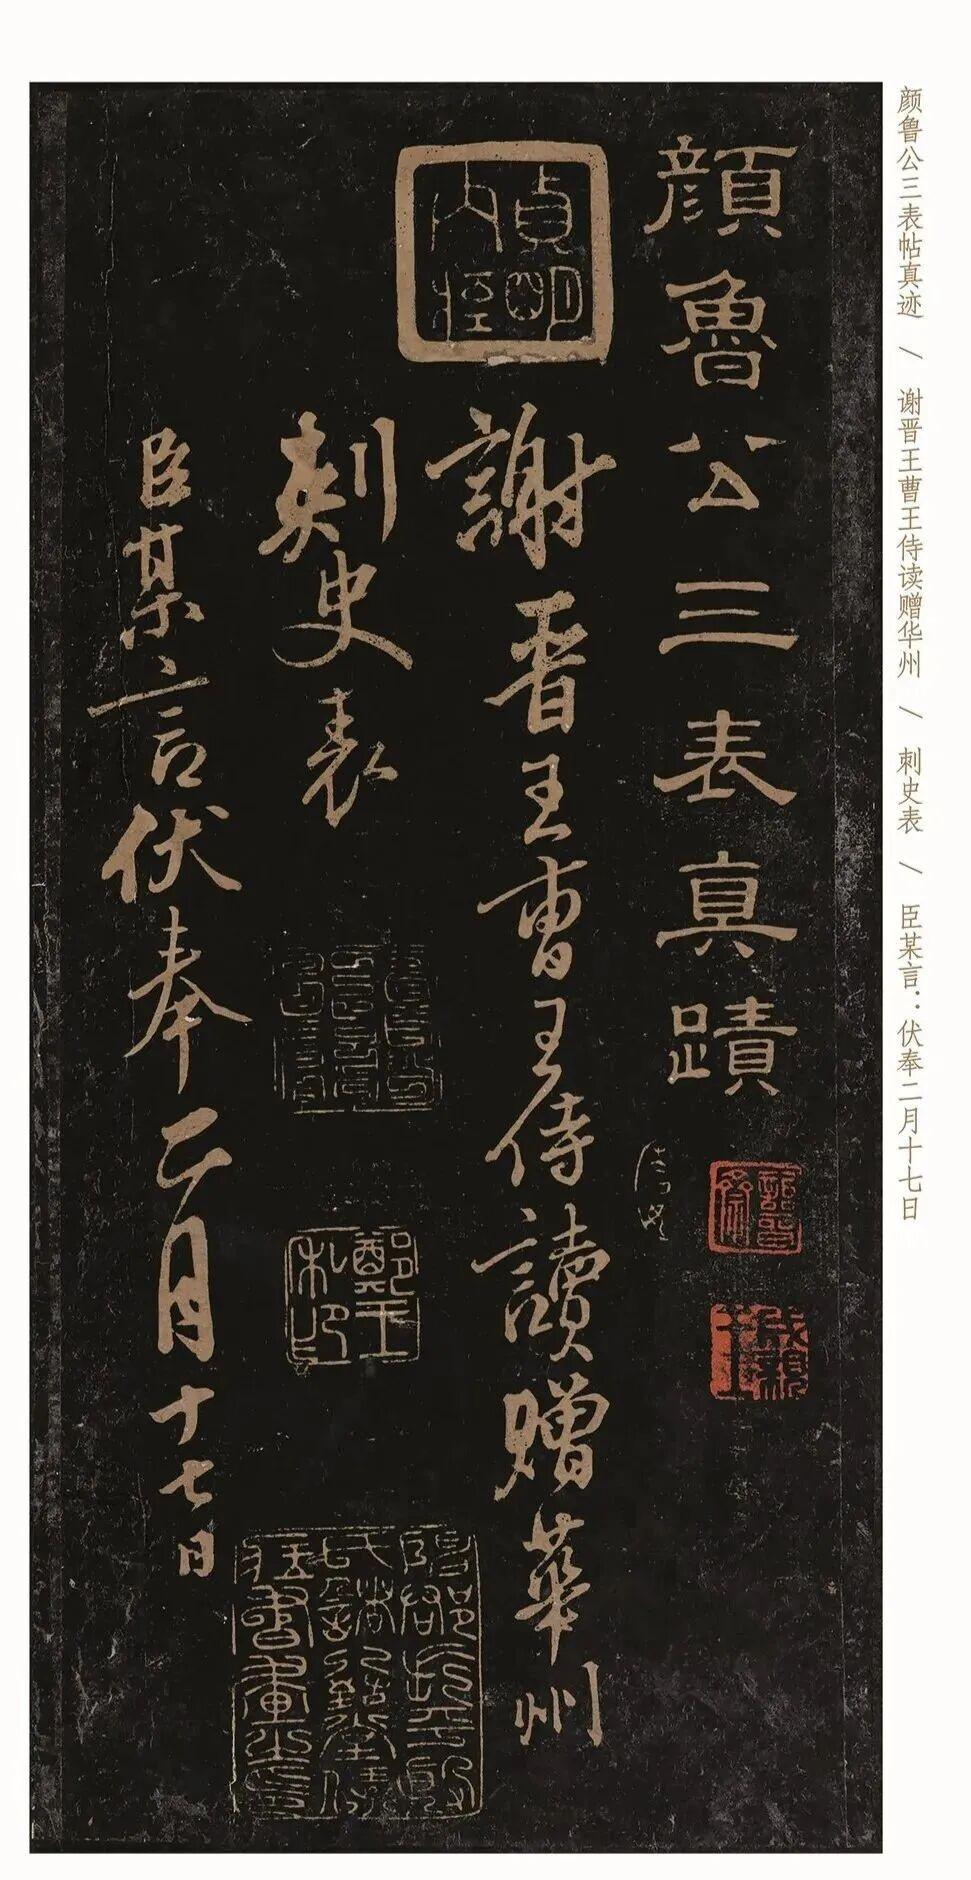 颜鲁公三表帖真迹 / 谢晋王曹王侍读赠华州 / 刺史表 / 臣某言：伏奉二月十七日
顔魯公三表真蹟
謝晋王曹王侍讀贈華州
刺史表
臣某言伏奉二月十七日
貞明
内府
鄭王
成親
王